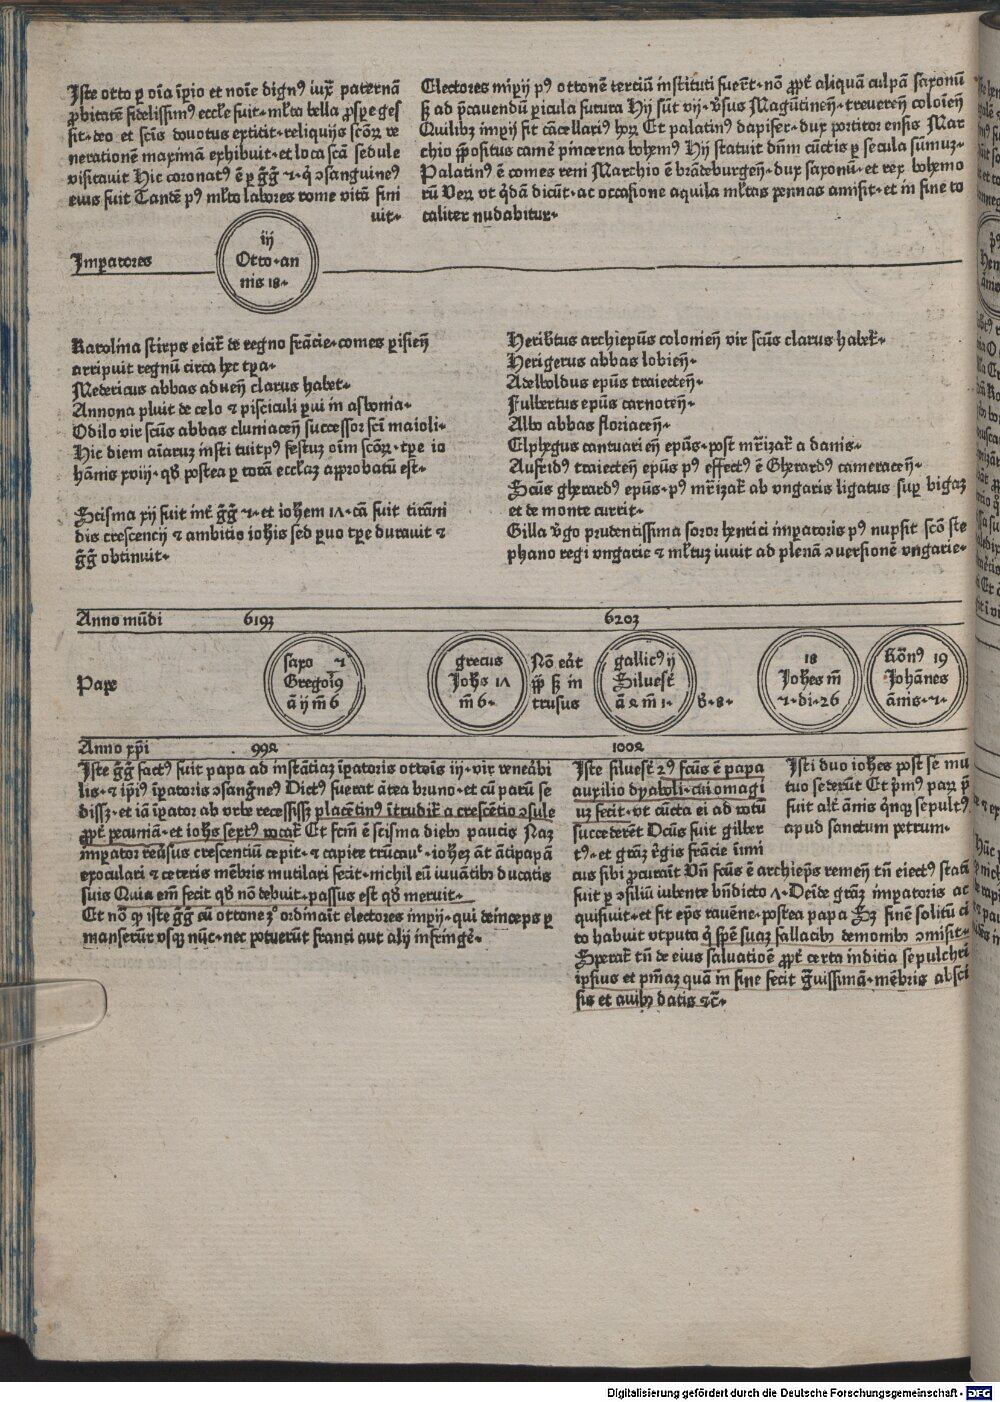 Iste otto ꝑ oīa īpio et noīe dignꝰ iux̄ paternā
ꝓbitatē fidelissimꝰ eccłe fuit · mĺta bella ꝓsꝑe gess
sit · deo et scīs devotus extitit · reliquijs scōꝝ ve
nerationē maximā exhibuit · et loca scā sedule
visitavit Hic coronatꝰ ē ꝑ ḡḡ ·v· q̇ ↄsanguineꝰ
eius fuit Tandē pꝰ mĺto labores rome vitā fini
uit·
Electores imꝑij pꝰ ottonē terciū instituti fuer̄t · nō ꝓpṫ aliquā culpā saxonū
ß ad p̄cavendū ꝑicula futura Hij sūt vij · v̄sus Magūtineñ · trevereñ coloieñ
Quilibꝫ imꝑij fit cācellariꝰ hoꝝ Et palatinꝰ dapifer · dux portitor ensis Mar
chio p̄positus camē pīncerna bohemꝰ Hij statuit dn̄m cūctis ꝑ secula sūmuꝫ ·
Palatinꝰ ē comes reni Marchio ē brādeburgeñ · dux saxonū · et rex bohemo
rū Veꝝ vt q̇dā dicūt · ac occasione aquila mĺtas pennas amisit · et in fine to
taliter nudabitur·
Imꝑatores
iij
Otto·an
nis 18·
Karolina stirps eicit̄ de regno frācie · comes ꝑisieñ
arripuit regnū circa hec tꝑa·
Medericus abbas adueñ clarus habet·
Annona pluit de celo ⁊ pisciculi ꝑui in asbonia·
Odilo vir scūs abbas cluniaceñ successor scī maioli·
Hic diem aīaruꝫ insti tuit pꝰ festuꝫ oīm scōꝝ · tꝑe io
hānis xviij · qḋ postea ꝑ totā eccłaꝫ approbatū est·
Heribtus archiepūs colonieñ vir scūs clarus habet̄·
Herigerus abbas lobieñ·
Adelboldus epūs traiecteñ·
Fulbertus epūs carnoteñ·
Albo abbas floriaceñ·
Elphegus cantuari eñ epūs · post mr̄izat̄ a danis·
Aufridꝰ traiecteñ epūs pꝰ effectꝰ ē Gherardꝰ cameraceñ·
Scūs gherardꝰ epūs · pꝰ mr̄izat̄ ab vngaris ligatus suꝑ bigaꝫ
et de monte currit·
Gilla v̄go prudentissima soror henrici imꝑatoris pꝰ nupsit scō ste
phano regi vngarie ⁊ mĺtuꝫ iuuit ad plenā ↄversionē vngarie·
Scisma xij fuit int̄ ḡḡ ·v· et iohem 17 · cā fuit tirāni
dis crescencij ⁊ ambitis iohis sed ꝑuo tꝑe durauit ⁊
ḡḡ obtinuit·
Anno mūdi 6193 6203
Pape
saxo v
Gregoi9
ā ij m̄ 6
grecus
Iohs 17
m̄ 6·
Nō eāt
qꝛ ß in
trusus
gallicꝰ ij
Silvesť
ā 4 m̄ 1·
ḋ·8·
18
Iohes m̄
·v·di·26
Rōnꝰ 19
Iohānes
āmis·v·
Anno xp̄i 994 1004
Iste ḡḡ factꝰ fuit papa ad instātiaꝫ īpatoris ottoīs iij · vir veneābi
lis · ⁊ ip̄iꝰ īꝑatoris ↄsanḡneꝰ Dictꝰ fuerat ātea bruno · et cū parū se
dissꝫ · et iā īꝑator ab vrbe recessissꝫ placētinꝰ ītrudit̄ a crescētio ↄsule
ꝓpṫ pecuniā · et iohs sextꝰ vocat̄ Et fcm̄ ē scisma diebꝫ paucis Naꝫ
imꝑator reūsus crescentiū cepit · ⁊ capite trūcauͭ · ioheꝫ āt ātipapā
exoculari ⁊ ceteris mēbris mutilari fecit · nichil eū iuuātibꝫ ducatis
suis Quia em̄ fecit qḋ nō debuit · passus est qḋ meruit·
Et nō qꝛ iste ḡḡ cū ottone 3ͦ ordinaīt electores imꝑij · qui deinceps ꝑ
manserūt vsqꝫ nūc · nec potuerūt franci aut alij infringē·
Iste silvesť 2ꝰ fcūs ē papa
auxilio dyaboli · cui omagi
uꝫ fecit · vt cūcta ei ad votū
succederēt Dcūs fuit gilber
tꝰ · et grāꝫ r̄gis frācie īimi
cus sibi ꝓcurāit Vn̄ fcūs ē archiep̄s remeñ tn̄ eiectꝰ statī
fuit ꝑ ↄsiliū iubente bn̄dicto 7 · Deīde grāꝫ imꝑatoris ac
quisiuit · et fit ep̄s ravēne · postea papa Sꝫ finē solitū ci
to habuit vtputa q̇ spē suaꝫ fallacibꝫ demonibꝫ ↄmisit·
Sperat̄ tn̄ de eius saluatioē ꝓpṫ certa inditia sepulchri
ipsius et pm̄aꝫ quā in fine fecit ḡuissimā · mēbris absci
sis et auibꝫ datis ⁊c̄·
Isti duo iohes post se mu
tuo sederūt Et p̄mꝰ parꝝ p̄
fuit alt̄ āmis q̇nqꝫ sepultꝰ
apud sanctum petrum·
Digitalisierung gefördert durch die Deutsche Forschungsgemeinschaft - DFG